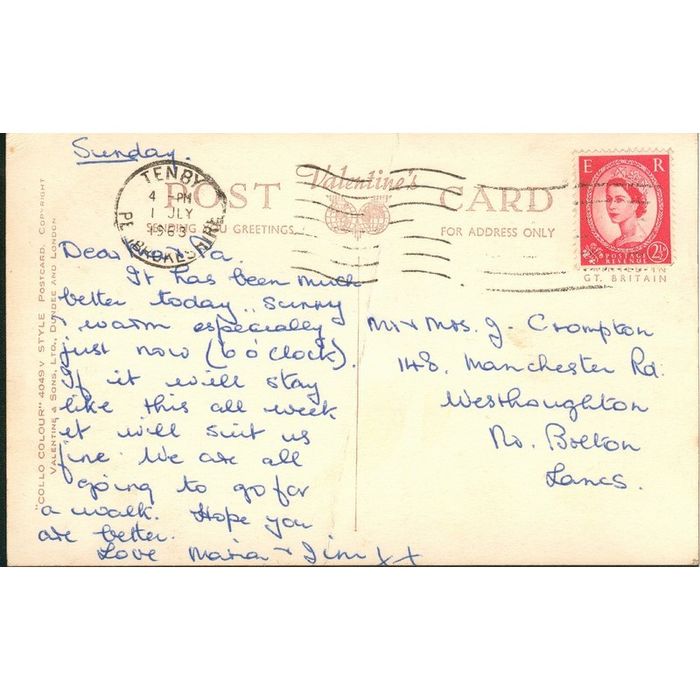 Sunday.
TENBY
4 - PM
1 JLY
1963
PEMBROKESHIRE
POST Valentine's CARD
SENDING YOU GREETINGS
FOR ADDRESS ONLY
E R
POSTAGE
REVENUE
2½D
PRINTED IN
GT. BRITAIN
"COLLO COLOUR" 4049 V STYLE POSTCARD. COPYRIGHT
VALENTINE & SONS, LTD., DUNDEE AND LONDON
Dear Pa.
It has been much
better today, sunny
& warm especially
just now (6 o'clock).
If it will stay
like this all week
it will suit us
fine. We are all
going to go for
a walk. Hope you
are better.
Love Maria & Jim x x
Mr & Mrs. J. Crompton
148, Manchester Rd.
Westhoughton
Nr. Bolton
Lancs.